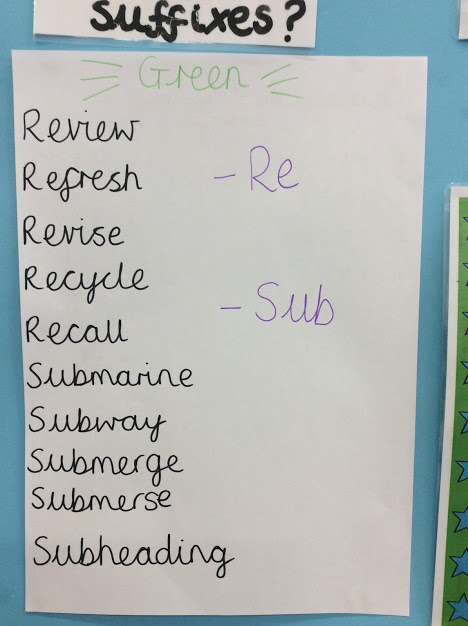 suffixes?
Green
Review
Refresh
- Re
Revise
Recycle
- Sub
Recall
Submarine
Subway
Submerge
Submerse
Subheading